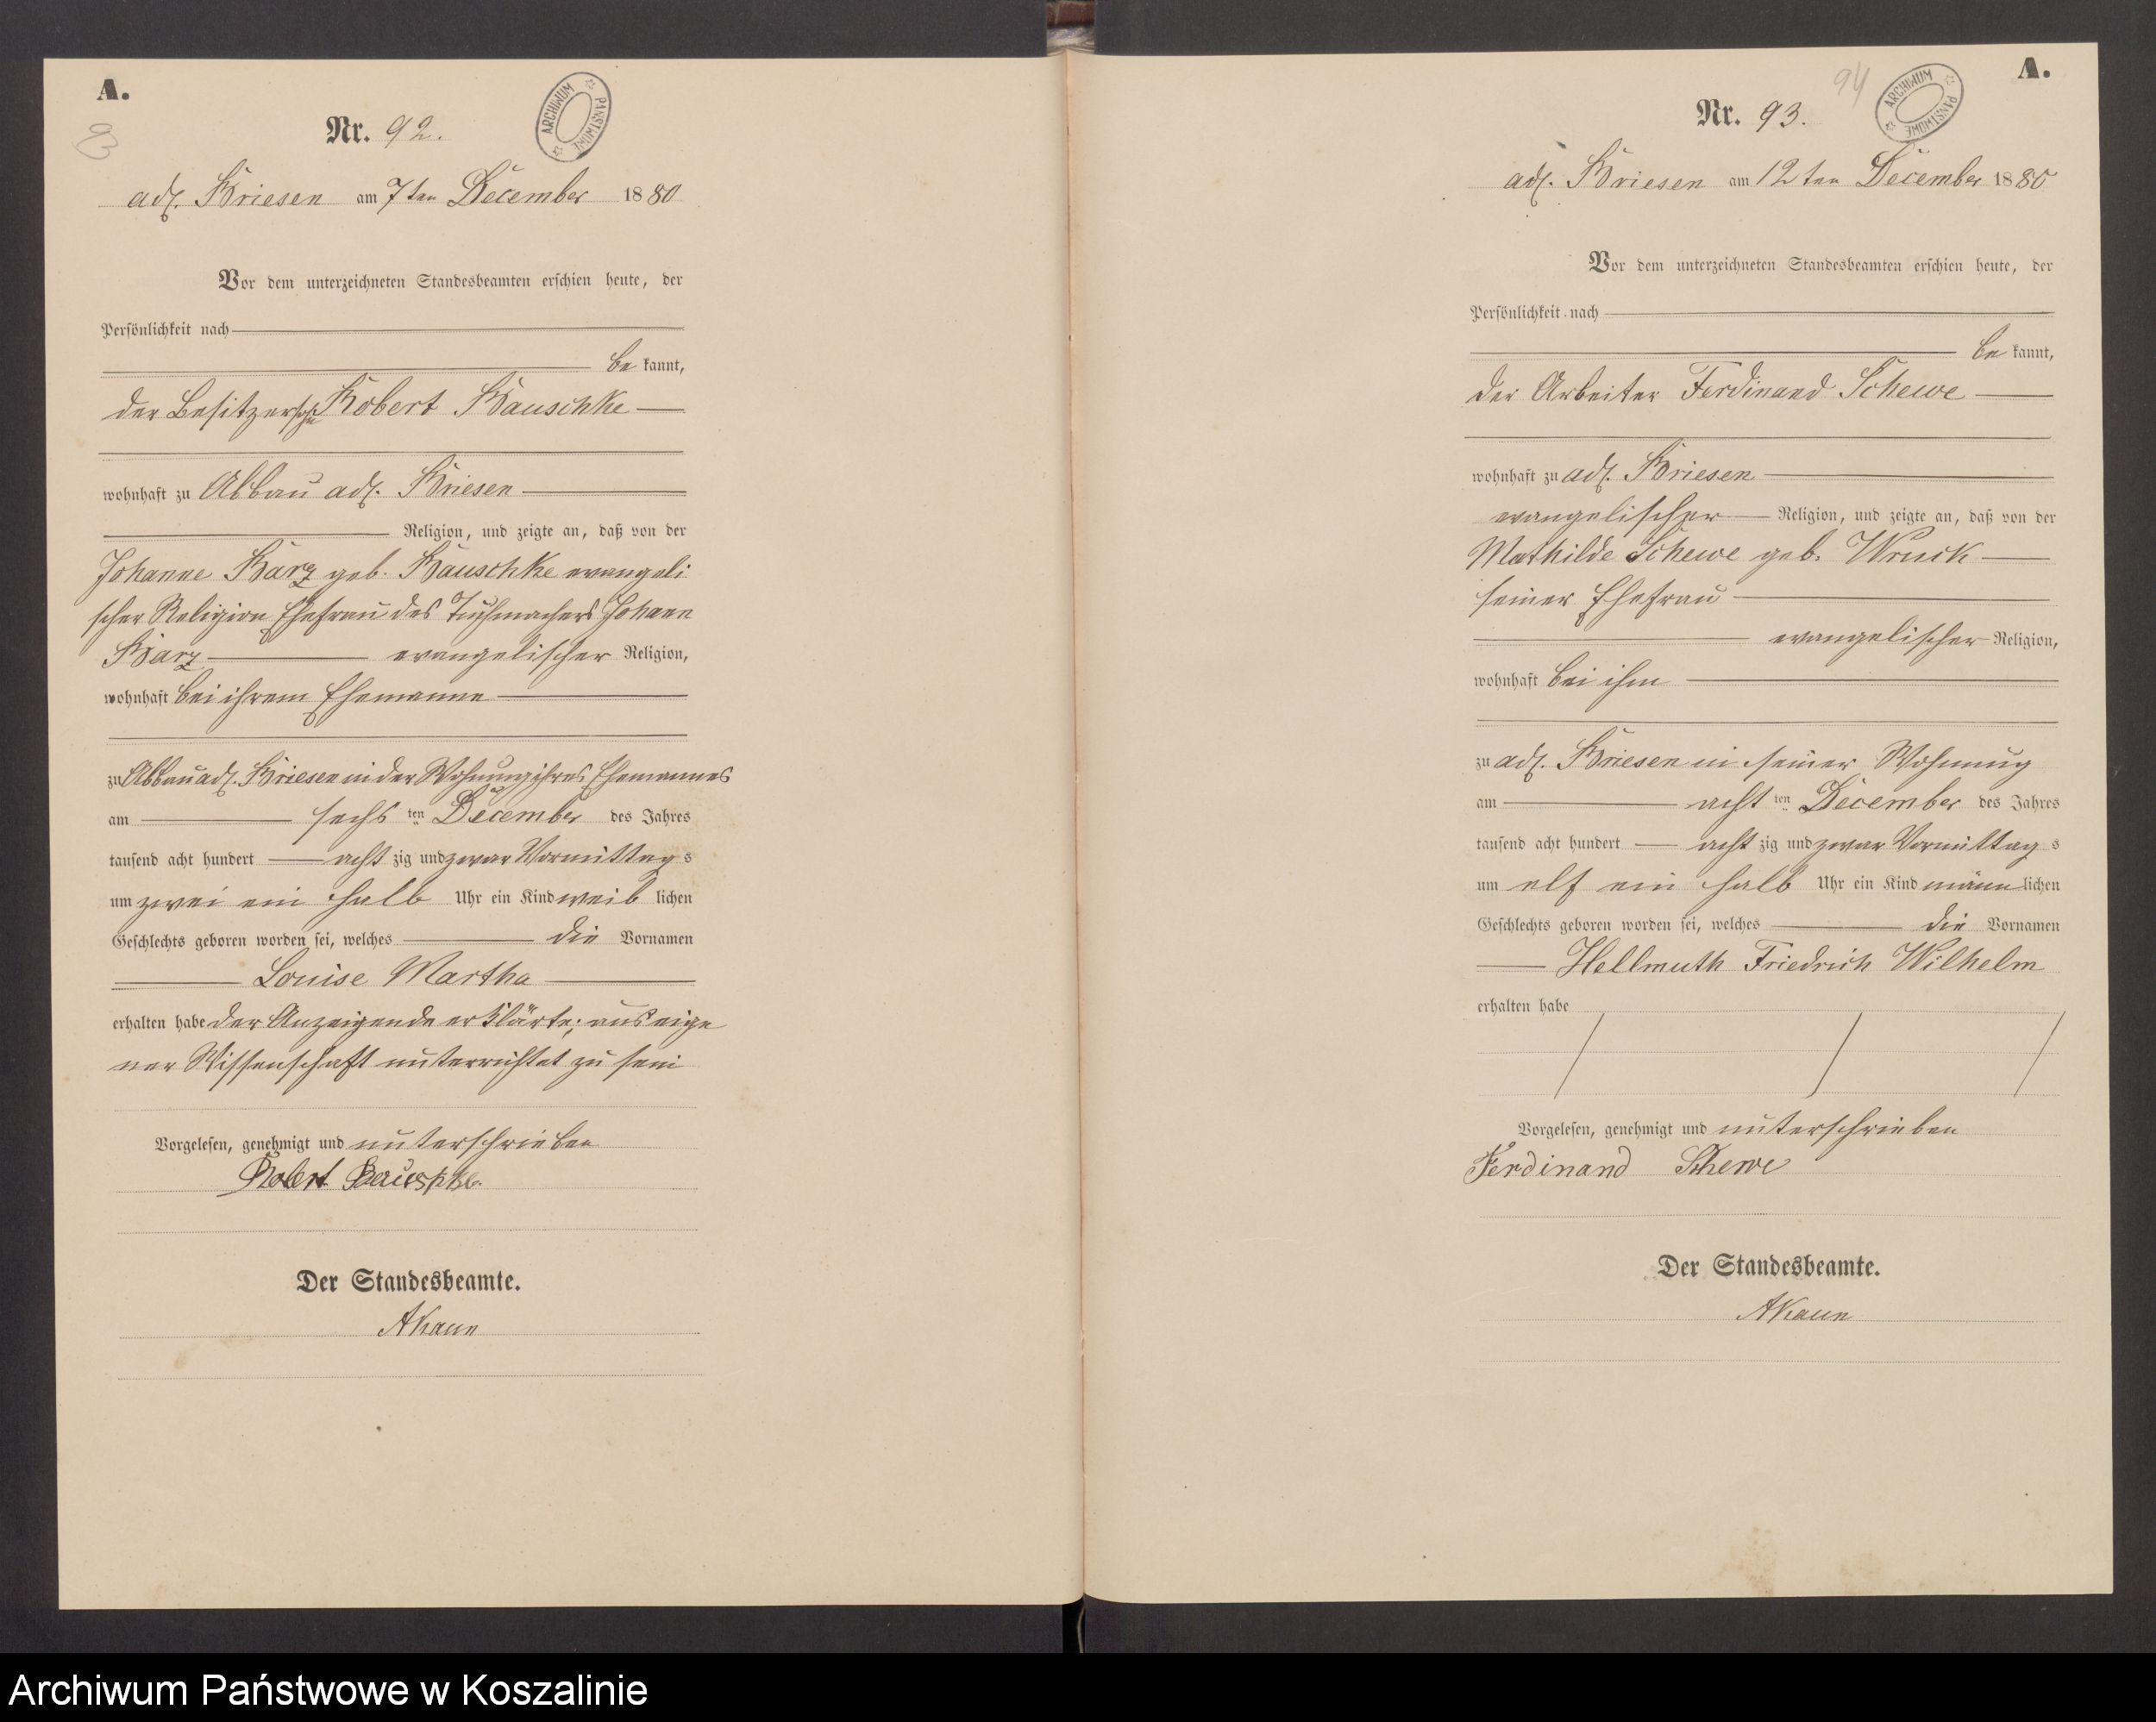 A.
93
Nr. 92.
ARCHIWUM PAŃSTWOWE
adl. Briesen am 7ten December 1880
Vor dem unterzeichneten Standesbeamten erschien heute, der
Persönlichkeit nach
be kannt,
der Besitzersohn Robert Bauschke
wohnhaft zu Abbau adl. Briesen
Religion, und zeigte an, daß von der
Johanne Barz geb. Bauschke evangeli
scher Religion Ehefrau des Tuchmachers Johann
Barz evangelischer Religion,
wohnhaft bei ihrem Ehemanne
zu Abbau adl. Briesen in der Wohnung ihres Ehemannes
am sechs ten December des Jahres
tausend acht hundert acht zig und zwar Vormittag s
um zwei ein halb Uhr ein Kind weib lichen
Geschlechts geboren worden sei, welches die Vornamen
Louise Martha
erhalten habe der Anzeigende erklärte; aus eige
ner Wissenschaft unterrichtet zu sein
Vorgelesen, genehmigt und unterschrieben
Robert Bauschke.
Der Standesbeamte.
A.
94
Nr. 93.
ARCHIWUM PAŃSTWOWE
adl. Briesen am 12ten December 1880
Vor dem unterzeichneten Standesbeamten erschien heute, der
Persönlichkeit nach
be kannt,
der Arbeiter Ferdinand Schewe
wohnhaft zu adl. Briesen
evangelischer Religion, und zeigte an, daß von der
Mathilde Schewe geb. Wruck
seiner Ehefrau
evangelischer Religion,
wohnhaft bei ihm
zu adl. Briesen in seiner Wohnung
am acht ten December des Jahres
tausend acht hundert acht zig und zwar Vormittag s
um elf ein halb Uhr ein Kind männ lichen
Geschlechts geboren worden sei, welches die Vornamen
Hellmuth Friedrich Wilhelm
erhalten habe
Vorgelesen, genehmigt und unterschrieben
Ferdinand Schewe
Der Standesbeamte.
Archiwum Państwowe w Koszalinie